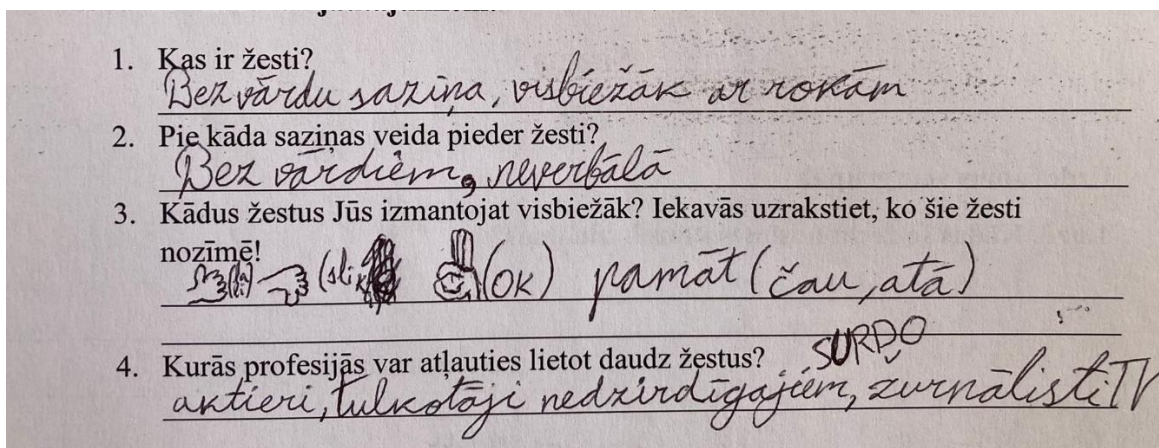 1. Kas ir žesti?
Bez vārdu saziņa, visbiežāk ar rokām
2. Pie kāda saziņas veida pieder žesti?
Bez vārdiem, neverbālā
3. Kādus žestus Jūs izmantojat visbiežāk? Iekavās uzrakstiet, ko šie žesti
nozīmē!
(OK) pamāt (čau, atā)
SURDO
4. Kurās profesijās var atļauties lietot daudz žestus?
aktieri, tulkotāji nedzirdīgajiem, žurnālisti TV